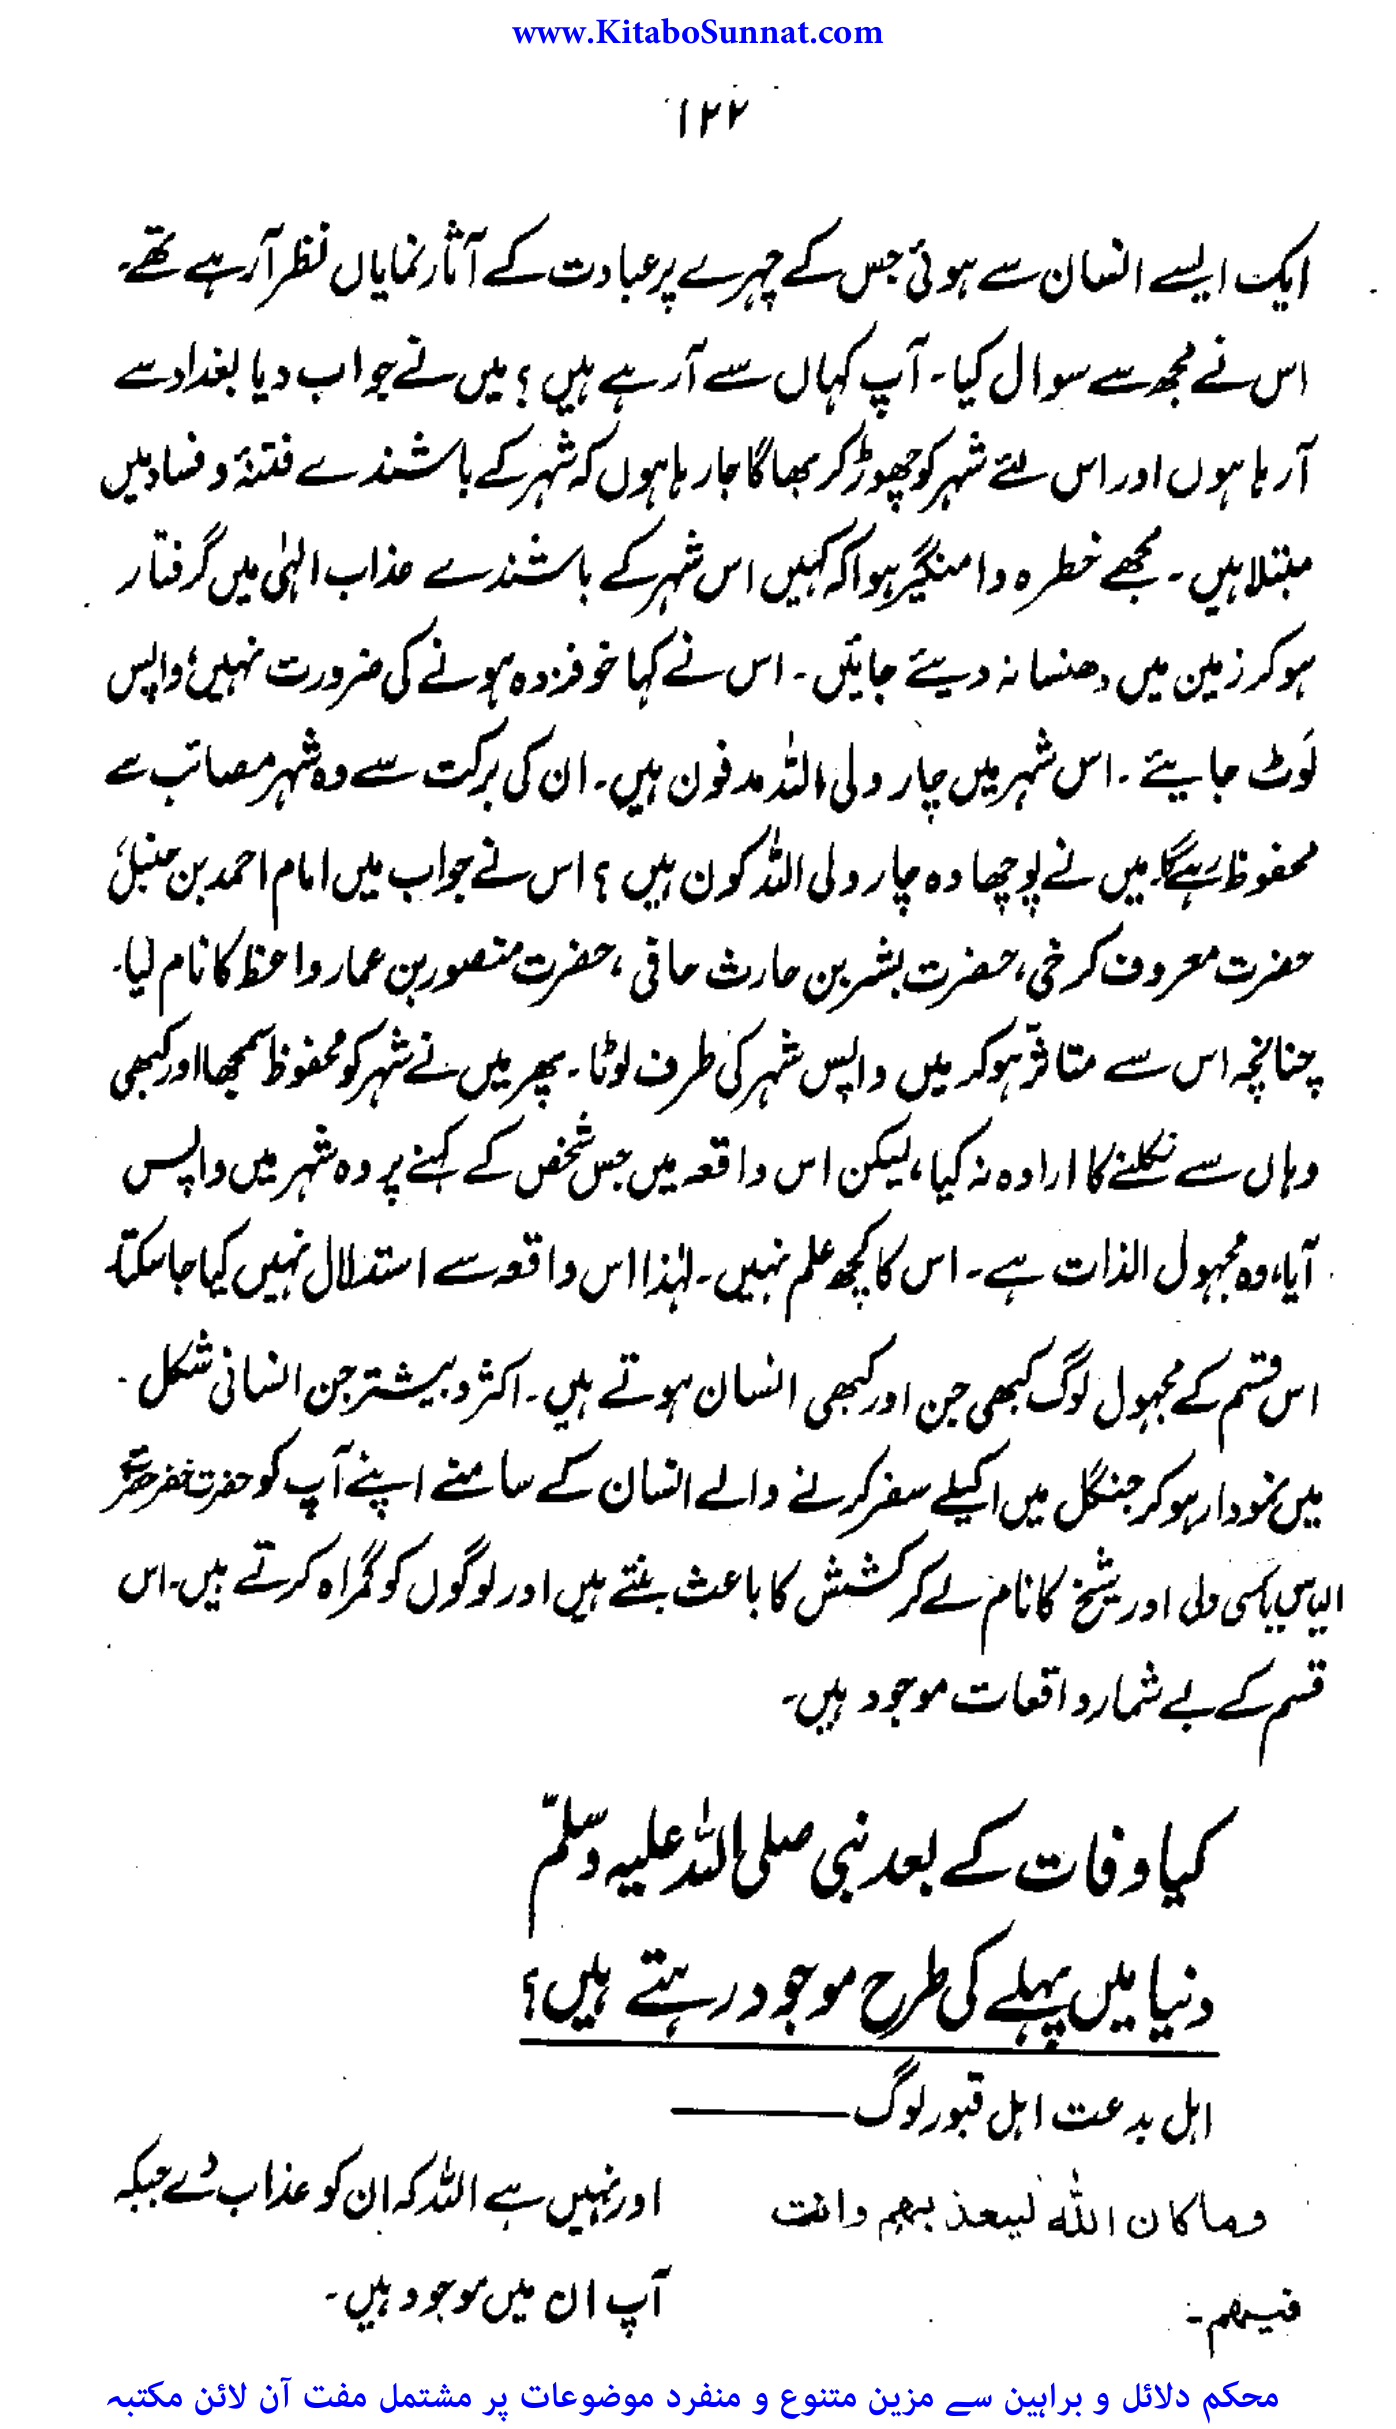 www.KitaboSunnat.com
۱۲۲
ایک ایسے انسان سے ہوئی جس کے چہرے پر عبادت کے آثار نمایاں نظر آرہے تھے۔
اس نے مجھ سے سوال کیا۔ آپ کہاں سے آرہے ہیں ؟ میں نے جواب دیا بغداد سے
آرہا ہوں اور اس لئے شہر کو چھوڑ کر بھاگا جارہا ہوں کہ شہر کے باشندے فتنۂ و فساد میں
مبتلا ہیں۔ مجھے خطرہ دامنگیر ہوا کہ کہیں اس شہر کے باشندے عذاب الہٰی میں گرفتار
ہو کر زمین میں دھنسا نہ دیئے جائیں۔ اس نے کہا خوفزدہ ہونے کی ضرورت نہیں؛ واپس
لَوٹ جایئے۔ اس شہر میں چار ولی اللہ مدفون ہیں۔ ان کی برکت سے وہ شہر مصائب سے
محفوظ رہے گا۔ میں نے پوچھا وہ چار ولی اللہ کون ہیں ؟ اس نے جواب میں امام احمد بن حنبلؒ
حضرت معروف کرخی، حضرت بشر بن حارث حافی ، حضرت منصور بن عمار واعظ کا نام لیا۔
چنانچہ اس سے متاثر ہو کر میں واپس شہر کی طرف لوٹا۔ پھر میں نے شہر کو محفوظ سمجھا اور کبھی
وہاں سے نکلنے کا ارادہ نہ کیا، لیکن اس واقعہ میں جس شخص کے کہنے پر وہ شہر میں واپس
آیا، وہ مجہول الذات ہے۔ اس کا کچھ علم نہیں۔ لہٰذا اس واقعہ سے استدلال نہیں کیا جاسکتا۔
اس قسم کے مجہول لوگ کبھی جن اور کبھی انسان ہوتے ہیں۔ اکثر و بیشتر جن انسانی شکل
میں نمودار ہو کر جنگل میں اکیلے سفر کرنے والے انسان کے سامنے اپنے آپ کو حضرت خضر حضرت
الیاس یا کسی ولی اور شیخ کا نام لے کر کشش کا باعث بنتے ہیں اور لوگوں کو گمراہ کرتے ہیں۔ اس
قسم کے بے شمار واقعات موجود ہیں۔
کیا وفات کے بعد نبی صلی اللہ علیہ وسلّم
دنیا میں پہلے کی طرح موجود رہتے ہیں؟
اہل بدعت اہل قبور لوگ ———
وما كان الله ليعذ بهم وانت
فيهم۔
اور نہیں ہے اللہ کہ ان کو عذاب دے جبکہ
آپ ان میں موجود ہیں۔
محکم دلائل و براہین سے مزین متنوع و منفرد موضوعات پر مشتمل مفت آن لائن مکتبہ